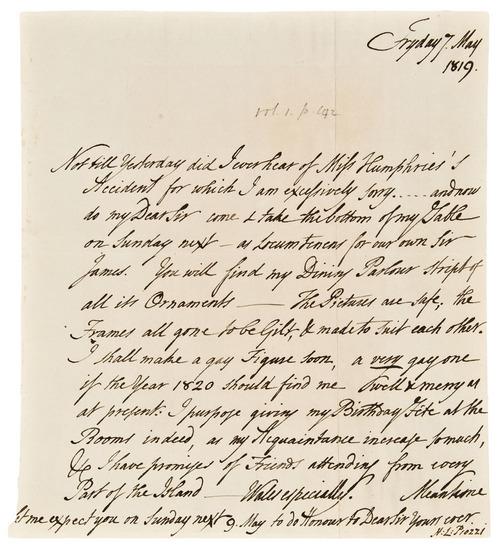 Fryday 7. May
1819.
vol. 1. p. 442
Not till Yesterday did I ever hear of Miss Humphries's
Accident for which I am excessively sorry..... and now
do my Dear Sir come & take the bottom of my Table
on Sunday next — as Locumtenens for our own Sir
James. You will find my Dining Parlour stript of
all its Ornaments — The Pictures are safe, the
Frames all gone to be Gilt, & made to suit each other.
I shall make a gay Figure soon, a very gay one
if the Year 1820 should find me well & merry as
at present: I purpose giving my Birthday Fete at the
Rooms indeed, as my Acquaintance increase so much,
& I have promises of Friends attending from every
Part of the Island — Wales especially. Meantime
let me expect you on Sunday next 9. May to do Honour to Dear Sir Yours ever.
H: L: Piozzi